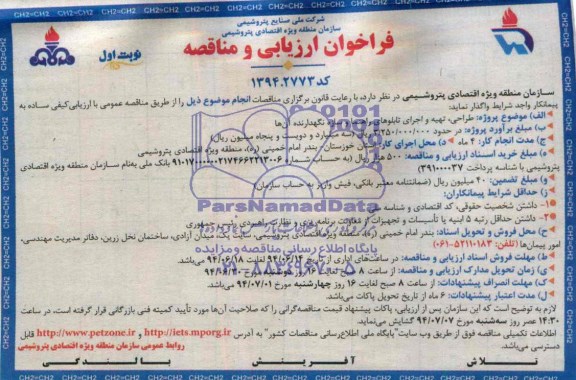 شرکت ملی صنایع پتروشیمی
سازمان منطقه ویژه اقتصادی پتروشیمی
فراخوان ارزیابی و مناقصه
نوبت اول
کد ۱۳۹۴.۲۷۷۳
سازمان منطقه ویژه اقتصادی پتروشیمی در نظر دارد، با رعایت قانون برگزاری مناقصات انجام موضوع ذیل را از طریق مناقصه عمومی با ارزیابی کیفی ساده به
پیمانکار واجد شرایط واگذار نماید:
الف) موضوع پروژه: طراحی، تهیه و اجرای تابلوهای و سازه نگهدارنده آن‌ها
ب) مبلغ برآورد پروژه: در حدود ۳/۲۵۰/۰۰۰/۰۰۰ ریال (سه میلیارد و دویست و پنجاه میلیون ریال)
ج) مدت انجام کار: ۴ ماه د) محل اجرای کار: استان خوزستان، بندر امام خمینی (ره)، منطقه ویژه اقتصادی پتروشیمی
ه) مبلغ خرید اسناد ارزیابی و مناقصه: ۵۰۰ هزار ریال (به حساب شماره بانک ملی به‌نام سازمان منطقه ویژه اقتصادی
پتروشیمی با شناسه پرداخت
و) مبلغ تضمین: ۴۰ میلیون ریال (ضمانتنامه معتبر بانکی، فیش واریز به حساب سازمان)
ز) حداقل شرایط پیمانکاران:
۱- داشتن شخصیت حقوقی، کد اقتصادی و شناسه
۲- داشتن حداقل رتبه ۵ ابنیه یا تأسیسات و تجهیزات از معاونت برنامه ریزی و نظارت راهبردی رئیس جمهوری
ح) محل فروش و تحویل اسناد: بندر امام خمینی (ره)، منطقه ویژه اقتصادی پتروشیمی، سایت یک، میدان آزادی، ساختمان نخل زرین، دفاتر مدیریت مهندسی،
امور پیمان‌ها (تلفن: ۵۲۱۱۰۱۸۳-۰۶۱)
ط) مهلت فروش اسناد ارزیابی و مناقصه: در ساعت‌های اداری از تاریخ ۹۴/۰۶/۱۴ لغایت ۹۴/۰۶/۱۸ می‌باشد.
ی) زمان تحویل مدارک ارزیابی و مناقصه: از ساعت ۸ صبح
ک) مهلت انصراف پیشنهادات: از ساعت ۸ صبح لغایت ۱۶ روز چهارشنبه مورخ ۹۴/۰۷/۰۱ می‌باشد.
ل) مدت اعتبار پیشنهادات: ۶ ماه از تاریخ تحویل پاکات می‌باشد.
لازم به توضیح است که این سازمان پس از ارزیابی، پاکات پیشنهاد قیمت مناقصه‌گرانی را که صلاحیت آن‌ها مورد تأیید کمیته فنی بازرگانی قرار گرفته است، در ساعت
۱۴:۳۰ عصر روز سه‌شنبه مورخ ۹۴/۰۷/۰۷ گشایش می‌نماید.
اطلاعات تکمیلی مناقصه فوق از طریق وب سایت "پایگاه ملی اطلاع‌رسانی مناقصات کشور" به آدرس http://iets.mporg.ir و http://www.petzone.ir قابل
دسترسی می‌باشد.
روابط عمومی سازمان منطقه ویژه اقتصادی پتروشیمی
تلاش آفرینش بالندگی
ParsNamadData
پایگاه اطلاع رسانی مناقصه و مزایده